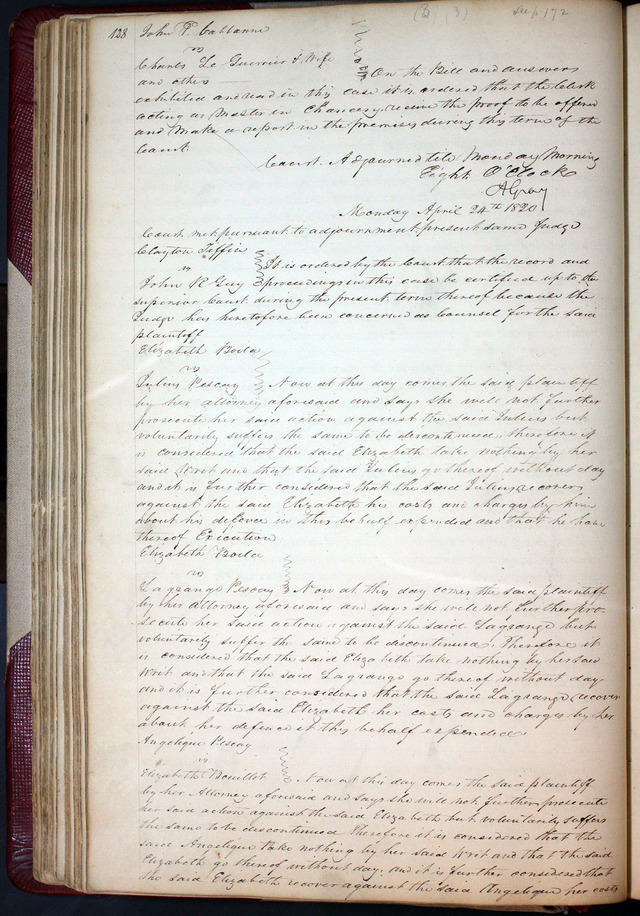 (3) (3) Sup 172
128 John P. Cabbanne
vs
Charles Le Guerrier & Wife
and others On the Bill and answers
exhibited and read in this case it is ordered that the Clerk
acting as Master in Chancery receive the proof to be offered
and make a report in the premises during this term of the
Court.
Court Adjourned till Monday Morning
Eight O'Clock
A Gray
Monday April 24th 1820
Court met pursuant to adjournment, present same Judge
Clayton Tiffin
vs It is ordered by the Court that the record and
John R Guy proceedings in this case be certified up to the
superior Court during the present term thereof because the
Judge has heretofore been concerned as Counsel for the said
plaintiff
Elizabeth Boda
vs
Julius Pescay Now at this day comes the said plaintiff
by her attorney aforesaid and says she will not further
prosecute her said action against the said Julius but
voluntarily suffers the same to be discontinued, therefore it
is considered that the said Elizabeth take nothing by her
said Writ and that the said Julius go thereof without day
and it is further considered that the said Julius, recover
against the said Elizabeth his costs and charges by him
about his defence in this behalf expended and that he have
thereof Execution
Elizabeth Boda
vs
Lagrange Pescay Now at this day comes the said plaintiff
by her Attorney aforesaid and says she will not further pro-
secute her said action against the said Lagrange but
voluntarily suffer the same to be discontinued, Therefore it
is considered that the said Elizabeth take nothing by her said
Writ and that the said Lagrange go thereof without day,
and it is further considered that the said Lagrange recover
against the said Elizabeth her costs and charges by her
about her defence in this behalf expended.
Angelique Pescay
vs
Elizabeth Bouillet Now at this day comes the said plaintiff
by her Attorney aforesaid and says she will not further prosecute
her said action against the said Elizabeth but voluntarily suffers
the same to be discontinued Therefore it is considered that the
said Angelique take nothing by her said Writ and that the said
Elizabeth go thereof without day, and it is further considered that
the said Elizabeth recover against the said Angelique her costs